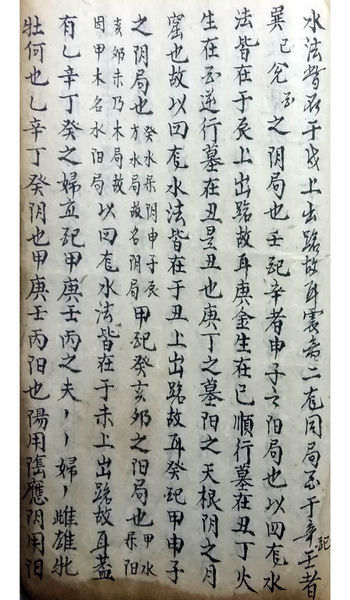 水法皆在于戌上出路故耳震亥二龙同局至于辛配壬者
巽巳兌酉之阴局也壬配辛者申子之阳局也以四龙水
法皆在于辰上出路故耳庚金生在巳順行墓在丑丁火
生在酉逆行墓在丑是丑也庚丁之墓阳之天根阴之月
窟也故以四龙水法皆在于丑上出路故耳癸配甲申子
之阴局也癸水系阴申子辰方水局故名阴局甲配癸亥卯之阳局也甲水系阳
亥卯未乃木局故因甲木名水阳局以四龙水法皆在于未上出路故耳蓋
有乙辛丁癸之婦宜配甲庚壬丙之夫丶丶婦丶雌雄牝
牡何也乙辛丁癸阴也甲庚壬丙阳也陽用隂應阴用阳